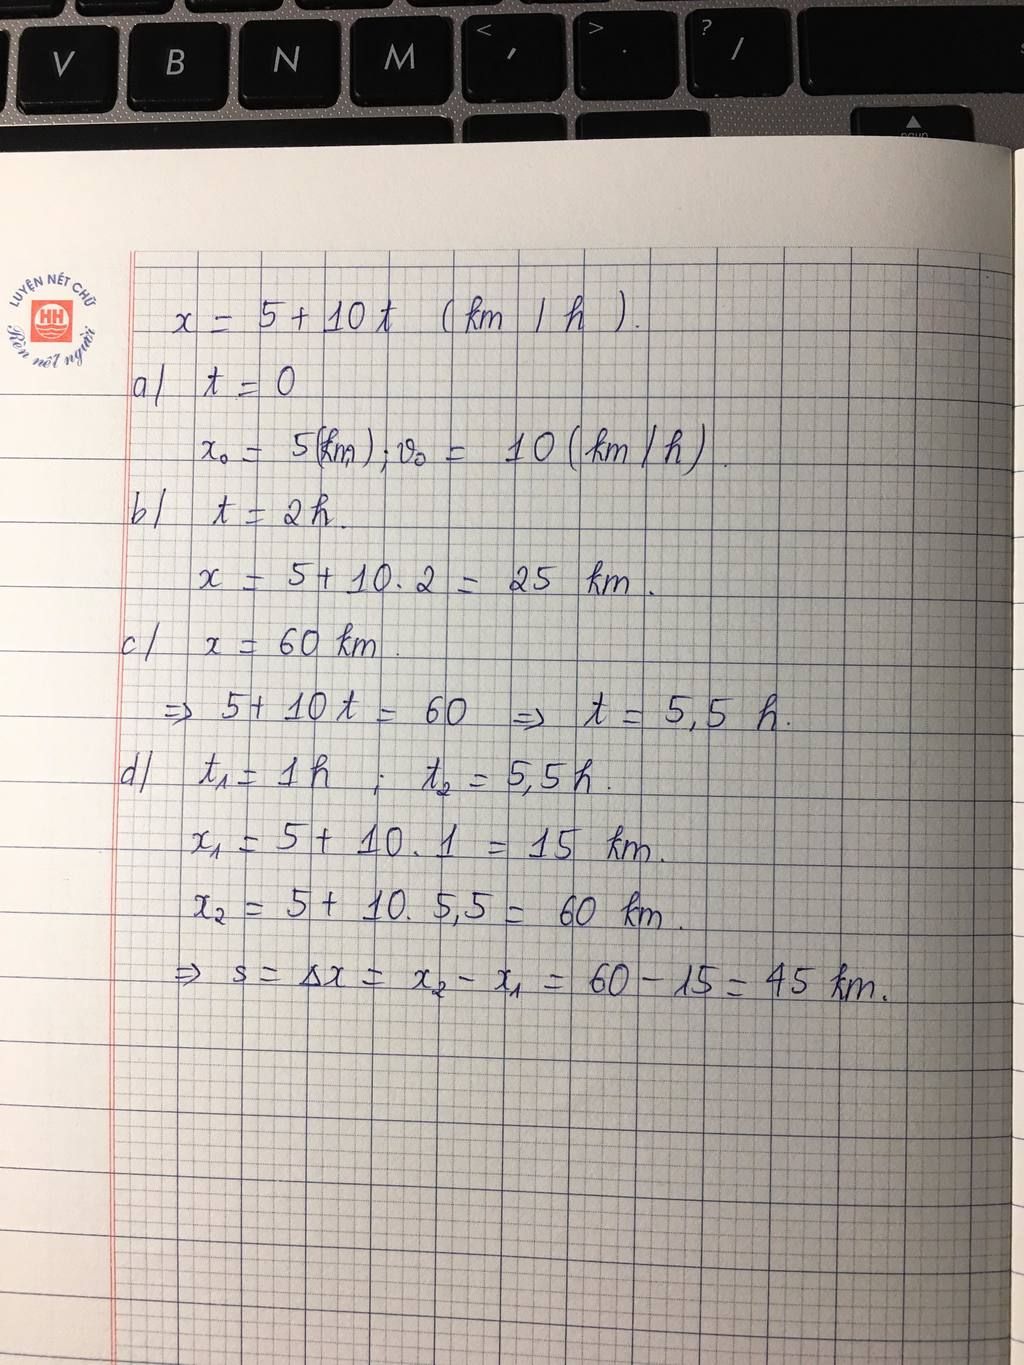 V B N M < , > . ? /
LUYỆN NÉT CHỮ
HH
Rèn nết người
x = 5 + 10t (km / h).
a/ t = 0
x₀ = 5(km); v₀ = 10 (km/h).
b/ t = 2h.
x = 5 + 10.2 = 25 km.
c/ x = 60 km.
⇒ 5 + 10t = 60 ⇒ t = 5,5 h.
d/ t₁ = 1h ; t₂ = 5,5h.
x₁ = 5 + 10.1 = 15 km.
x₂ = 5 + 10.5,5 = 60 km.
⇒ s = Δx = x₂ − x₁ = 60 − 15 = 45 km.